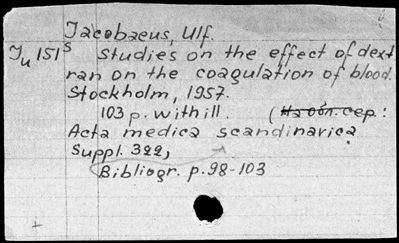 Jacobaeus, Ulf.
Ju 151 s Studies on the effect of dext
ran on the coagulation of blood.
Stockholm, 1957.
103 p. with ill. (На обл. сер.:
Acta medica scandinavica
Suppl. 322,
Bibliogr. p. 98-103